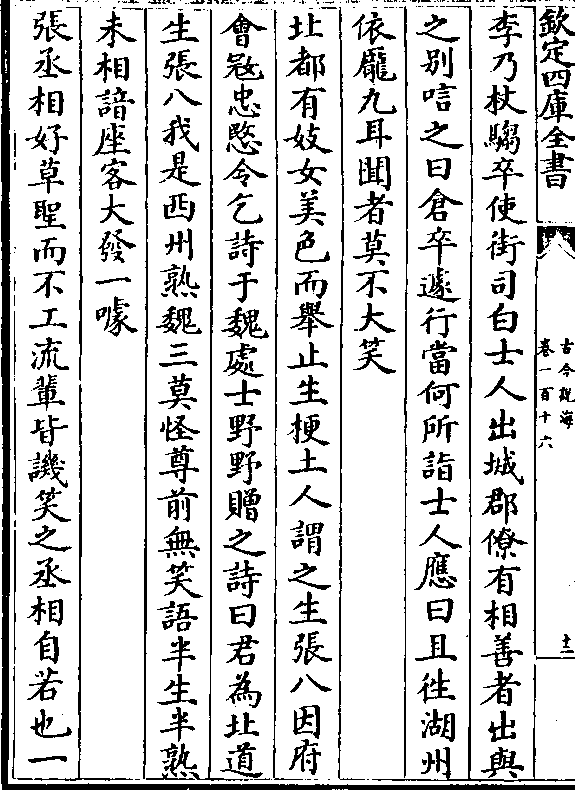 欽定四庫全書
古今說海
卷一百十六
十二
李乃杖騶卒使街司白士人出城郡僚有相善者出與
之别唁之曰倉卒遽行當何所詣士人應曰且徃湖州
依龎九耳聞者莫不大笑
北都有妓女美色而舉止生梗土人謂之生張八因府
會冦忠愍令乞詩于魏處士野野贈之詩曰君為北道
生張八我是西州熟魏三莫怪尊前無笑語半生半熟
未相諳座客大發一噱
張丞相好草聖而不工流軰皆譏笑之丞相自若也一